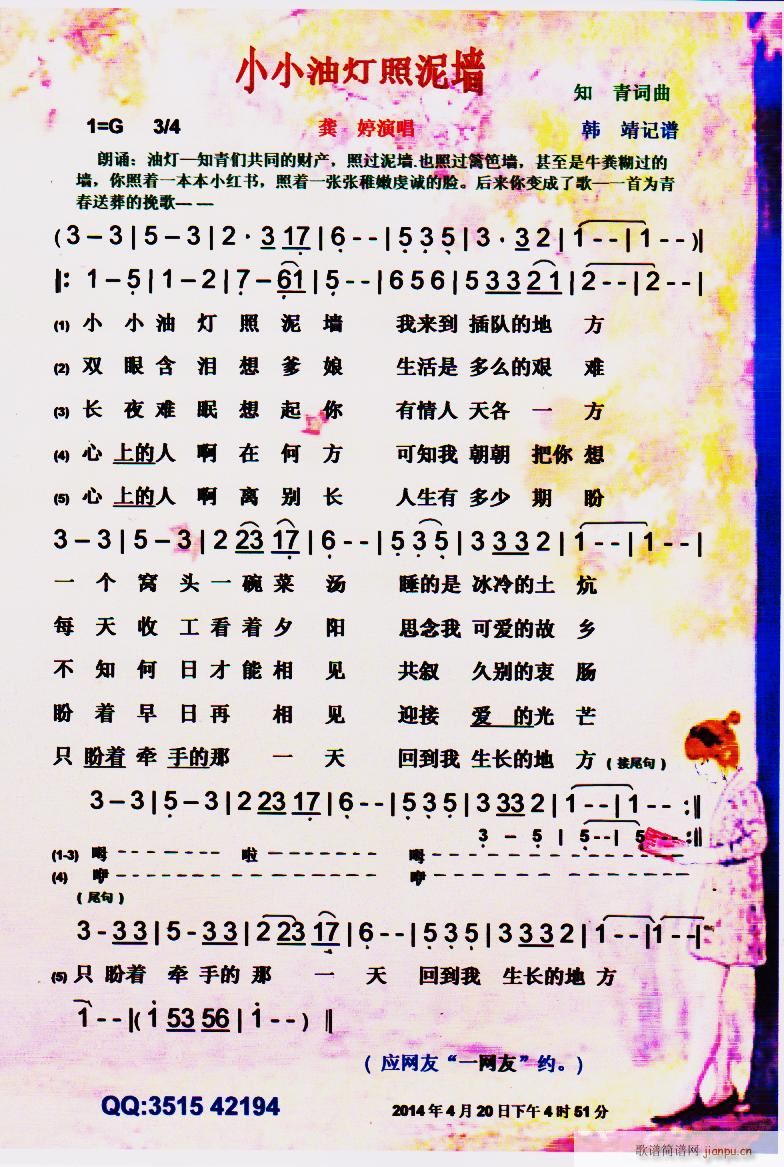 小小油灯照泥墙
知 青词曲
1=G 3/4 龚 婷演唱 韩 靖记谱
朗诵：油灯—知青们共同的财产，照过泥墙.也照过篱笆墙，甚至是牛粪糊过的
墙，你照着一本本小红书，照着一张张稚嫩虔诚的脸。后来你变成了歌—一首为青
春送葬的挽歌— —
( 3 – 3 | 5 – 3 | 2 · 3 17 | 6 - - | 5 3 5 | 3 · 3 2 | 1 - - | 1 - - )||
||: 1 – 5 | 1 – 2 | 7 – 61 | 5 - - | 6 5 6 | 5 33 21 | 2 - - | 2 - - |
(1) 小 小 油 灯 照 泥 墙 我来到 插队的地 方
(2) 双 眼 含 泪 想 爹 娘 生活是 多么的艰 难
(3) 长 夜 难 眠 想 起 你 有情人 天各 一 方
(4) 心 上的人 啊 在 何 方 可知我 朝朝 把你 想
(5) 心 上的人 啊 离 别 长 人生有 多少 期 盼
3 – 3 | 5 – 3 | 2 23 17 | 6 - - | 5 3 5 | 3 33 2 | 1 - - | 1 - - |
一 个 窝 头 一 碗 菜 汤 睡的是 冰冷的土 炕
每 天 收 工 看 着 夕 阳 思念我 可爱的故 乡
不 知 何 日 才 能 相 见 共叙 久别的衷 肠
盼 着 早 日 再 相 见 迎接 爱 的光 芒
只 盼着 牵 手的那 一 天 回到我 生长的地 方 (接尾句)
3 – 3 | 5 – 3 | 2 23 17 | 6 - - | 5 3 5 | 3 33 2 | 1 - - | 1 - - :||
3 - 5 | 5 - - | 5 - - :||
(1-3) 喝 - - - - - - - 啦 - - - - - - - - 喝 - - - - - - - -
(4) 咿 - - - - - - - - 咿 - - - - - - - -
(尾句)
3 - 33 | 5 - 33 | 2 23 17 | 6 - - | 5 3 5 | 3 33 2 | 1 - - | 1 - - |
(5) 只 盼着 牵 手的 那 一 天 回到我 生长的地 方
1 - - | ( 1 53 56 | 1 - - ) ||
( 应网友“一网友”约。)
QQ:3515 42194 2014年4月20日下午4时51分
歌谱简谱网 jianpu.cn